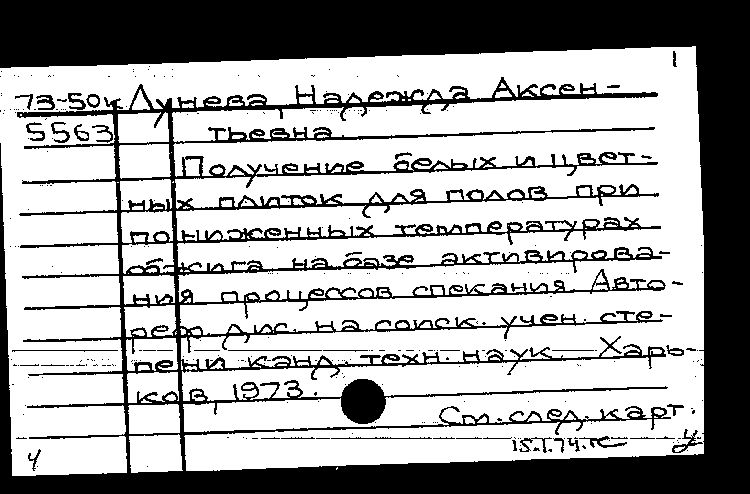 1
73-50к Лунева, Надежда Аксен-
5563 тьевна.
Получение белых и цвет-
ных плиток для полов при
пониженных температурах
обжига на базе активирова-
ния процессов спекания. Авто-
реф. дис. на соиск. учен. сте-
пени канд. техн. наук. Харь-
ков, 1973.
См. след. карт.
15.I.74.